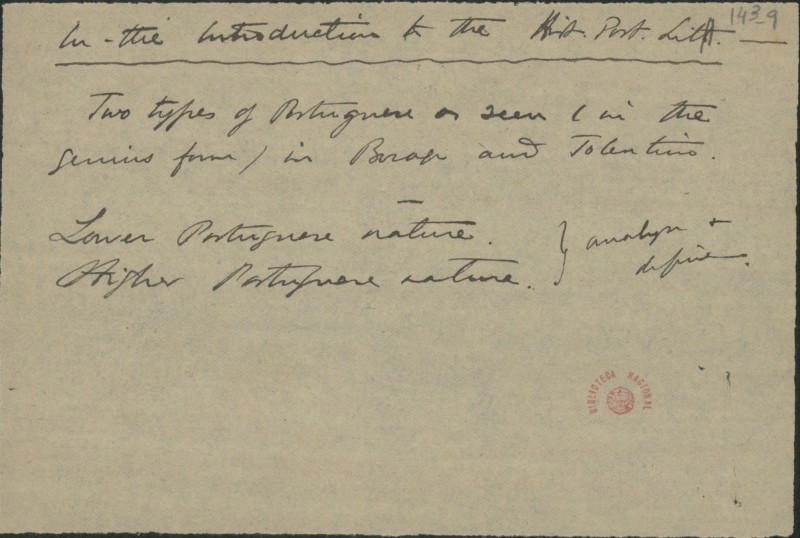 143-9
In the Introduction to the Hist. Port. Litt.
Two types of Portuguese as seen (in the
genius form) in Bocage and Tolentino.
—
Lower Portuguese nature.
Higher Portuguese nature. } analyse +
define.
BIBLIOTECA NACIONAL